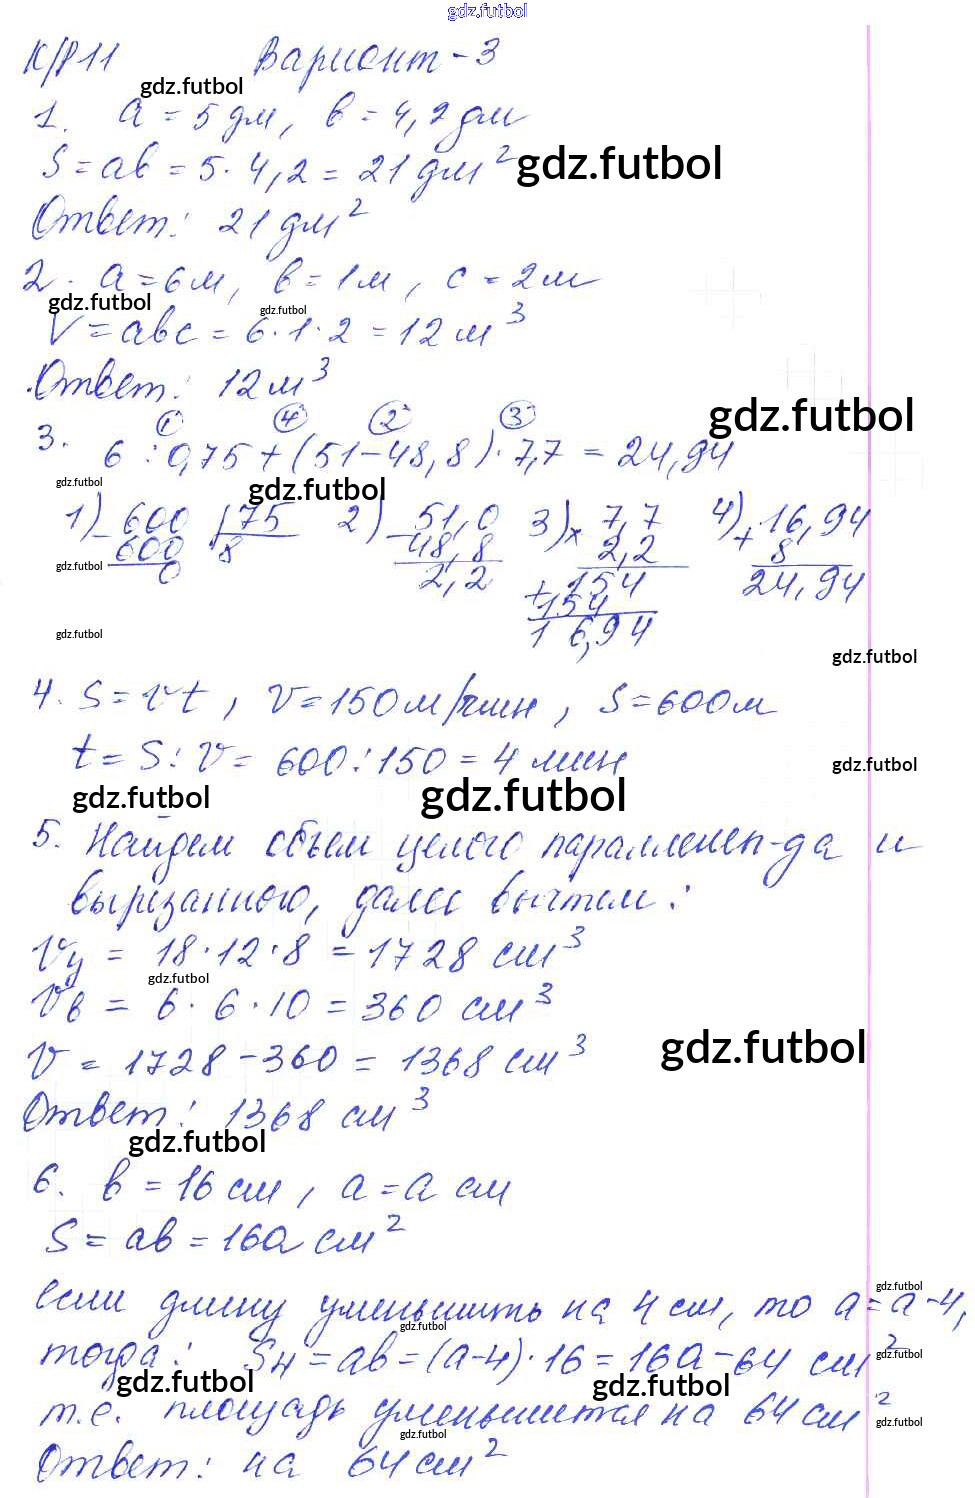 gdz.futbol
К/р 11 Вариант - 3
gdz.futbol
1. a = 5 дм, в = 4,2 дм
S = ав = 5 · 4,2 = 21 дм² gdz.futbol
Ответ: 21 дм²
2. a = 6 м, в = 1 м, с = 2 м
gdz.futbol gdz.futbol
V = авс = 6 · 1 · 2 = 12 м³
Ответ: 12 м³
gdz.futbol
① ④ ② ③
3. 6 : 0,75 + (51 - 48,8) · 7,7 = 24,94
gdz.futbol gdz.futbol
1) 600 | 75 2) 51,0 3) 7,7 4) 16,94
- 600 8 - 48,8 × 2,2 + 8
0 2,2 154 24,94
gdz.futbol
+ 154
16,94
gdz.futbol
gdz.futbol
4. S = vt, v = 150 м/мин, S = 600 м
t = S : v = 600 : 150 = 4 мин
gdz.futbol
gdz.futbol gdz.futbol
5. Найдем объем целого параллелеп-да и
вырезанного, далее вычтем:
Vц = 18 · 12 · 8 = 1728 см³
gdz.futbol
Vв = 6 · 6 · 10 = 360 см³
V = 1728 - 360 = 1368 см³
gdz.futbol
Ответ: 1368 см³
gdz.futbol
6. в = 16 см, а = а см
S = ав = 16а см²
gdz.futbol
если длину уменьшить на 4 см, то а = а - 4,
gdz.futbol
тогда: Sн = ав = (а-4) · 16 = 16а - 64 см²
gdz.futbol
gdz.futbol gdz.futbol
т.е. площадь уменьшится на 64 см²
gdz.futbol
gdz.futbol
Ответ: на 64 см²